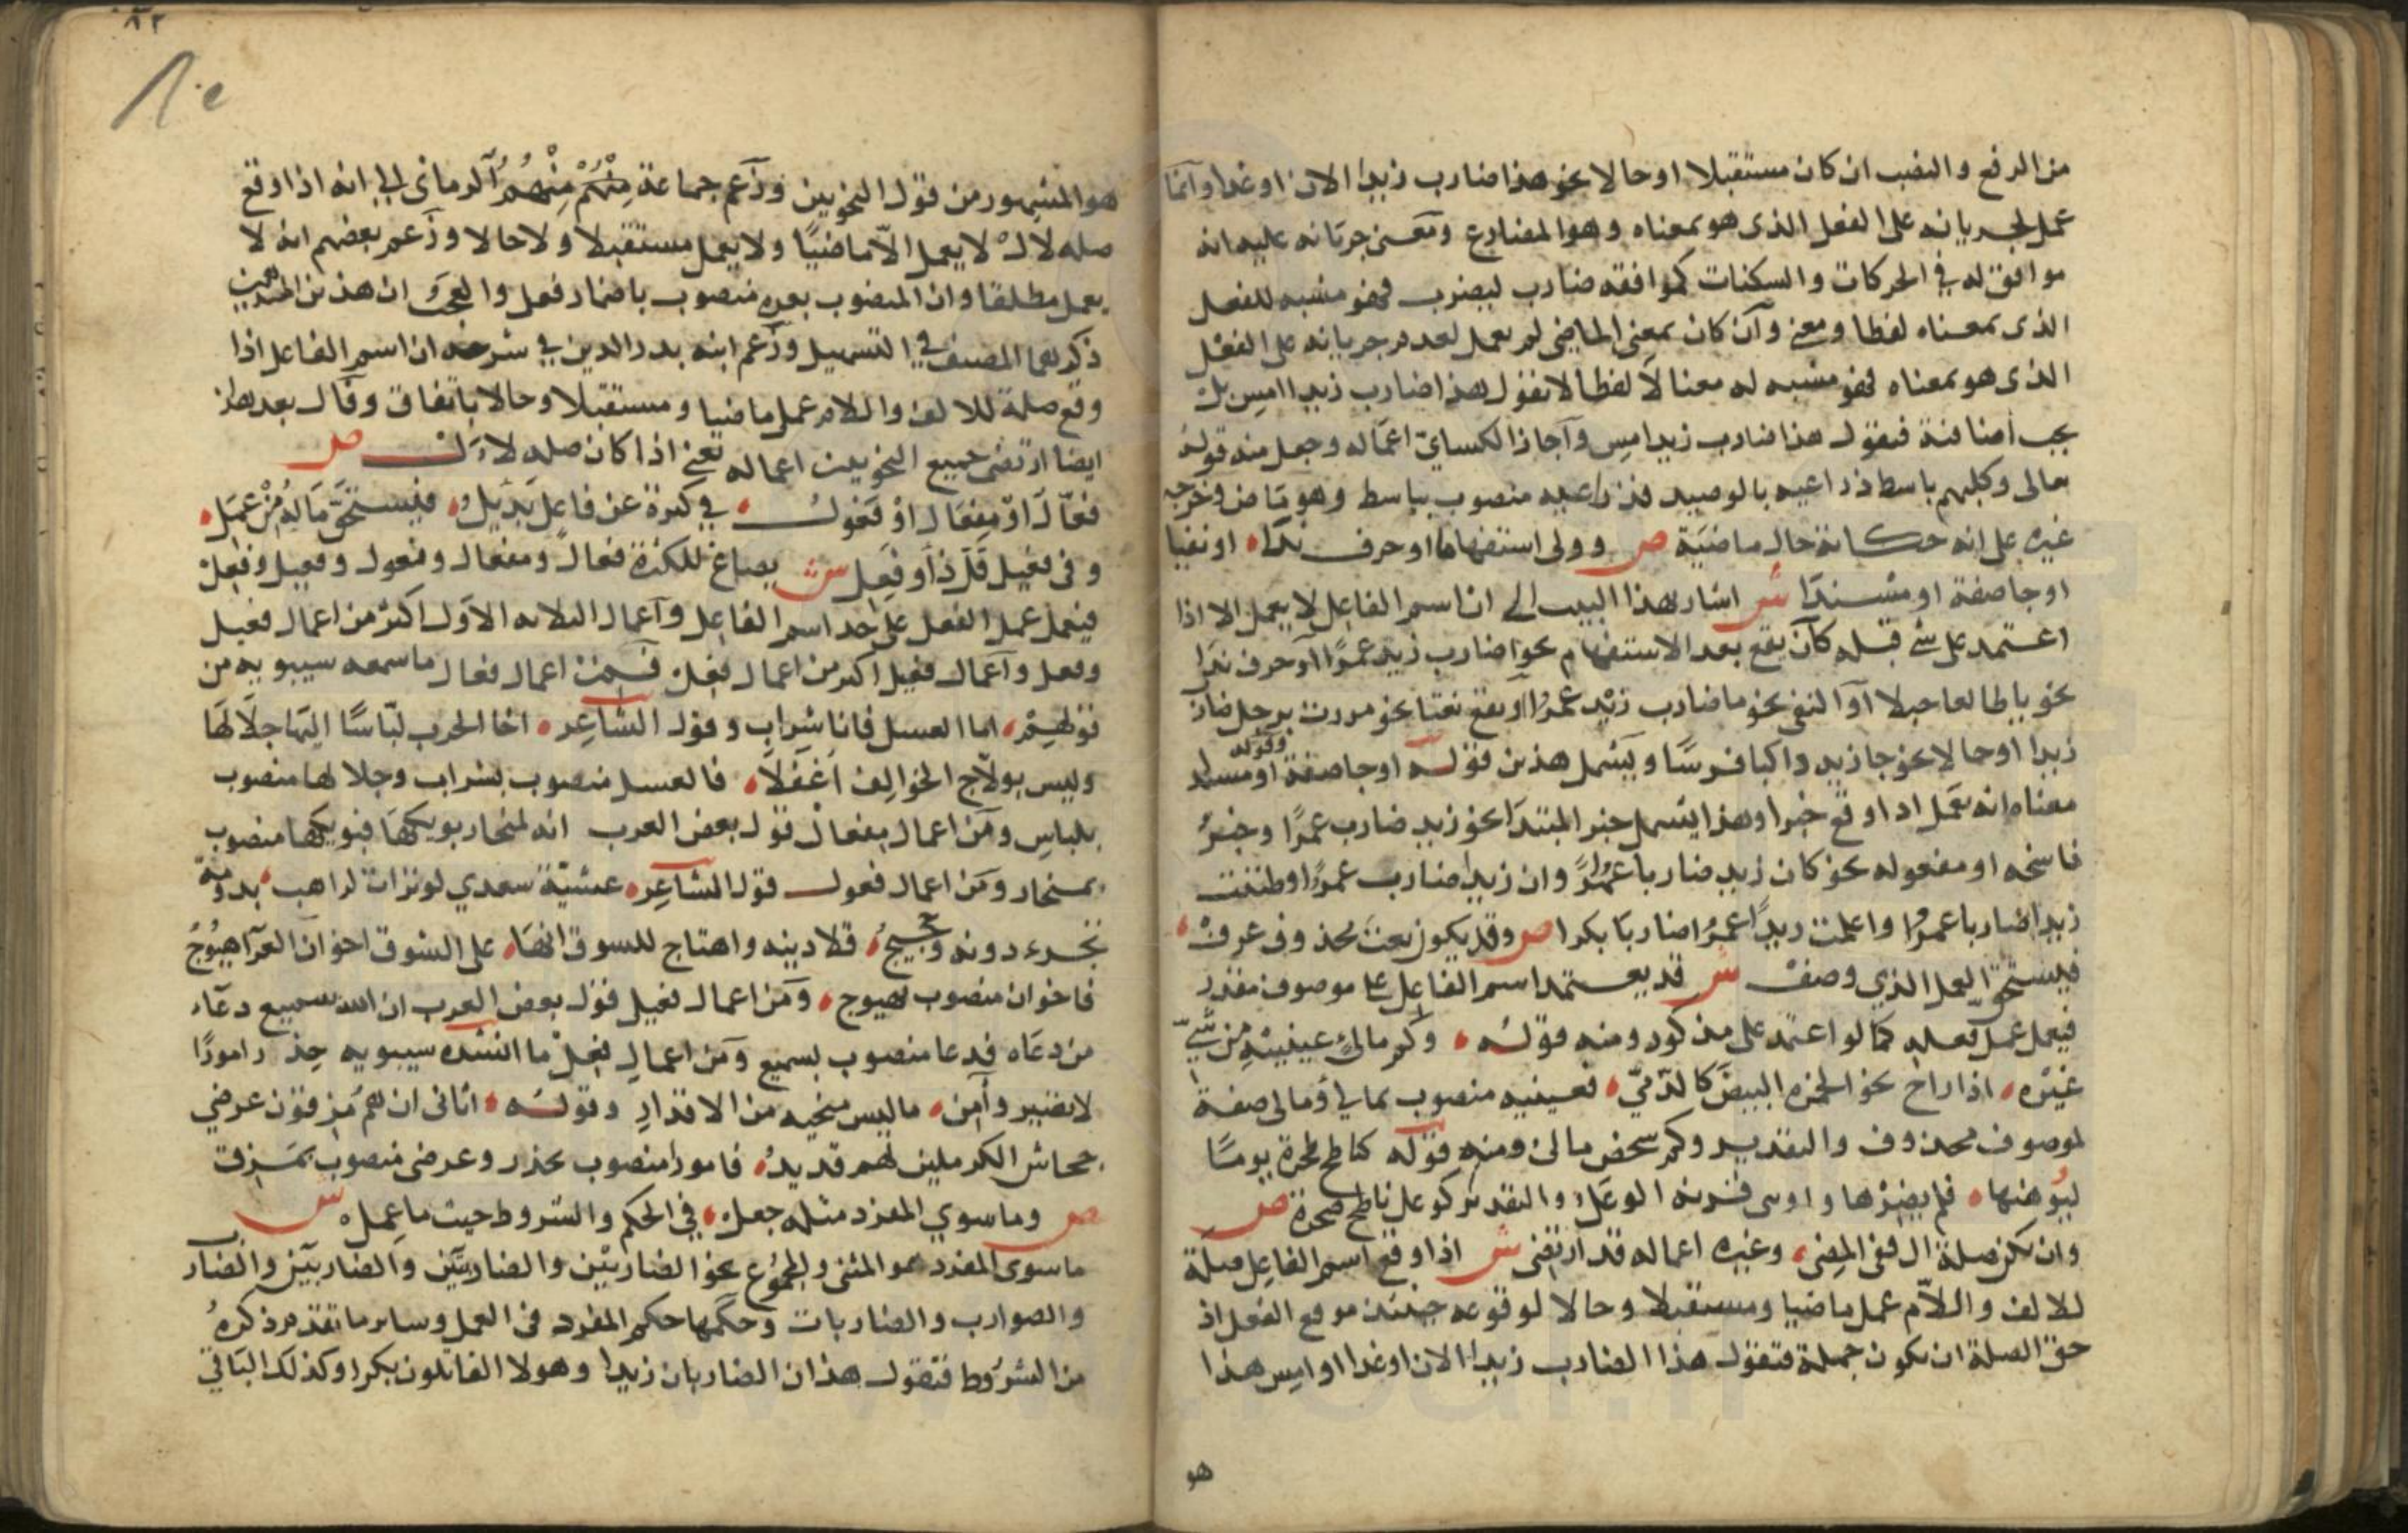 من الرفع والنصب ان كان مستقبلا او حالا نحو هذا ضارب زيدا الان او غدا وانما
عمل لجريانه على الفعل الذى هو بمعناه وهو المضارع ومعنى جريانه عليه انه
موافق له في الحركات والسكنات كموافقه ضارب ليضرب فهو مشبه للفعل
الذى بمعناه لفظا ومعنى وآن كان بمعنى الماضى لم يعمل لعدم جريانه على الفعل
الذى هو بمعناه فهو مشبه له معنا لا لفظا لا تقول هذا ضارب زيدا امس بل
يجب اضافته فيقول هذا ضارب زيد امس وآجاز الكسائي اعماله وجعل منه قوله
تعالى وكلبهم باسط ذراعيه بالوصيد فذراعيه منصوب بباسط وهو ماض وخرجه
غيره على انه حكاية حال ماضية ص وولى استفهاما او حرف ندا او نفيا
او جا صفة او مسندا ش اشار بهذا البيت الى ان اسم الفاعل لا يعمل الا اذا
اعتمد على شي قبله كان يقع بعد الاستفهام نحو اضارب زيد عمرًا آو حرف ندا
نحو يا طالعا جبلا آو النفى نحو ما ضارب زيد عمرا او يقع نعتا نحو مررت برجل ضارب
زيدا او حالا نحو جا زيد راكبا فرسًا ويشمل هذين قوله او جا صفة وقوله او مسندا
معناه انه يعمل اذا وقع خبرا وهذا يشمل خبر المبتدا نحو زيد ضارب عمرًا وخبر
ناسخه او مفعوله نحو كان زيد ضاربا عمرًا وان زيدا ضارب عمرًا وظننت
زيدا ضاربا عمرًا واعلمت زيدًا عمرًا ضاربا بكرا ص وقد يكون نعت محذوف عرف
فيستحق العمل الذي وصف ش قد يعتمد اسم الفاعل على موصوف مقدر
فيعمل عمل فعله كما لو اعتمد على مذكور ومنه قوله وكم مالئ عينيه من شيّ
غيره اذا راح نحو الجمرة البيض كالدمىّ فعينيه منصوب بمالئ ومالى صفة
لموصوف محذوف والتقدير وكم شخص مالئ ومنه قوله كناطح صخرة يومًا
ليوهنها فلم يضرها واوهى قرنه الوعل والتقدير كوعل ناطح صخرة ص
وان يكن صلة ال ففى المضى وغيره اعماله قد ارتضى ش اذا وقع اسم الفاعل صلة
للالف واللآم عمل ماضيا ومستقبلا وحالا لوقوعه حينئذ موقع الفعل اذ
حق الصلة ان يكون جملة فتقول هذا الضارب زيدا الان او غدا او امس هذا
هو
٨٢
هو المشهور من قول النحويين وزعم جماعة منهم الرمانى الى انه اذا وقع
صله لال لا يعمل الآ ماضيًا ولا يعمل مستقبلا ولا حالا وزعم بعضهم انه لا
يعمل مطلقا وان المنصوب بعده منصوب باضمار فعل والعجب ان هذين المذهبين
ذكرهما المصنف في التسهيل وزعم ابنه بدر الدين في شرحه ان اسم الفاعل اذا
وقع صلة للالف واللام عمل ماضيا ومستقبلا وحالا باتفاق وقال بعد هذا
ايضا ارتضى جميع النحويين اعماله يعني اذا كان صله لال ص
فعّال آو مفعال او فعول في كثرة عن فاعل بديل فيستحق ماله من عمل
وفى فعيل قل ذا وفعل ش يصاغ للكثرة فعال ومفعال وفعول وفعيل وفعل
فيعمل عمل الفعل على حد اسم الفاعل وآعمال الثلاثه الاول اكثر من اعمال فعيل
وفعل وآعمال فعيل اكثر من اعمال فعل فمن اعمال فعال ما سمعه سيبويه من
قولهم اما العسل فانا شراب وقول الشاعر اخا الحرب لبّاسًا اليها جلالها
وليس بولاج الخوالف اعقلا فالعسل منصوب بشراب وجلالها منصوب
بلباس ومن اعمال مفعال قول بعض العرب انه لمنحار بوايكها فبوايكها منصوب
بمنحار ومن اعمال فعول قول الشاعر عشية سعدي لو تراءت لراهب بدومة
تجر دونه وحجيج قلا دينه واهتاج للشوق انها على الشوق اخوان العزا هيوج
فاخوان منصوب بهيوج ومن اعمال فعيل قول بعض العرب ان الله سميع دعاء
من دعاه فدعا منصوب بسميع ومن اعمال فعل ما انشده سيبويه حذر امورًا
لا تضير وآمن ما ليس منجيه من الاقدار وقوله اتانى انهم مزقون عرضي
جحاش الكرملين لهم فديد فامورا منصوب بحذر وعرضى منصوب بمزق
ص وما سوي المفرد مثله جعل في الحكم والشروط حيث ما عمل ش
ما سوى المفرد هو المثنى والمجموع نحو الضاربين والضاربتين والضاربين والضراب
والضوارب والضاربات وحكمها حكم المفرد فى العمل وساير ما تقدم ذكره
من الشروط فتقول هذان الضاربان زيدا وهولا القاتلون بكرا وكذلك الباقي